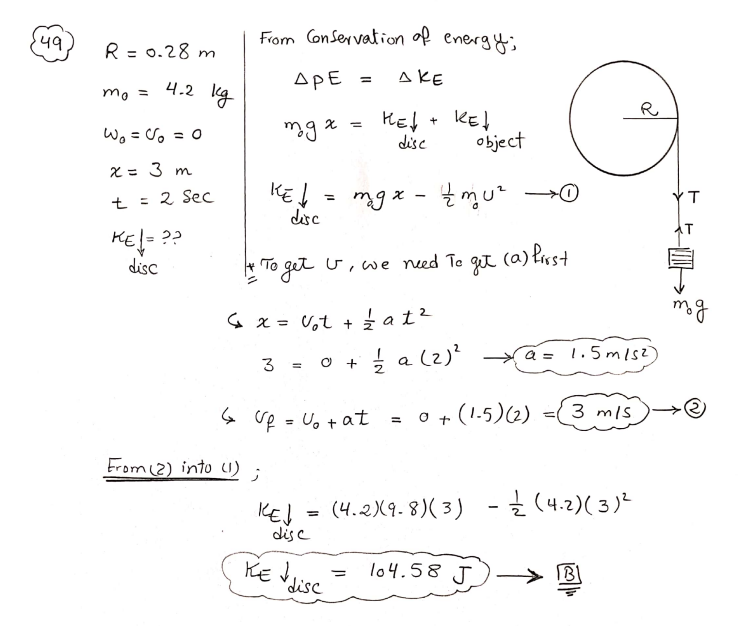 49
R = 0.28 m
m₀ = 4.2 kg
ω₀ = υ₀ = 0
x = 3 m
t = 2 Sec
KE↓ = ??
disc
From Conservation of energy;
ΔPE = ΔKE
m₀g x = KE↓ + KE↓
disc object
KE↓ = m₀g x − ½ m₀ υ² → ①
disc
* To get υ, we need To get (a) first
↳ x = υ₀t + ½ a t²
3 = 0 + ½ a (2)² → a = 1.5 m/s2
↳ υf = υ₀ + at = 0 + (1.5)(2) = 3 m/s → ②
From (2) into (1) ;
KE↓ = (4.2)(9.8)(3) − ½ (4.2)(3)²
disc
KE↓disc = 104.58 J → B
R
T
T
m₀g